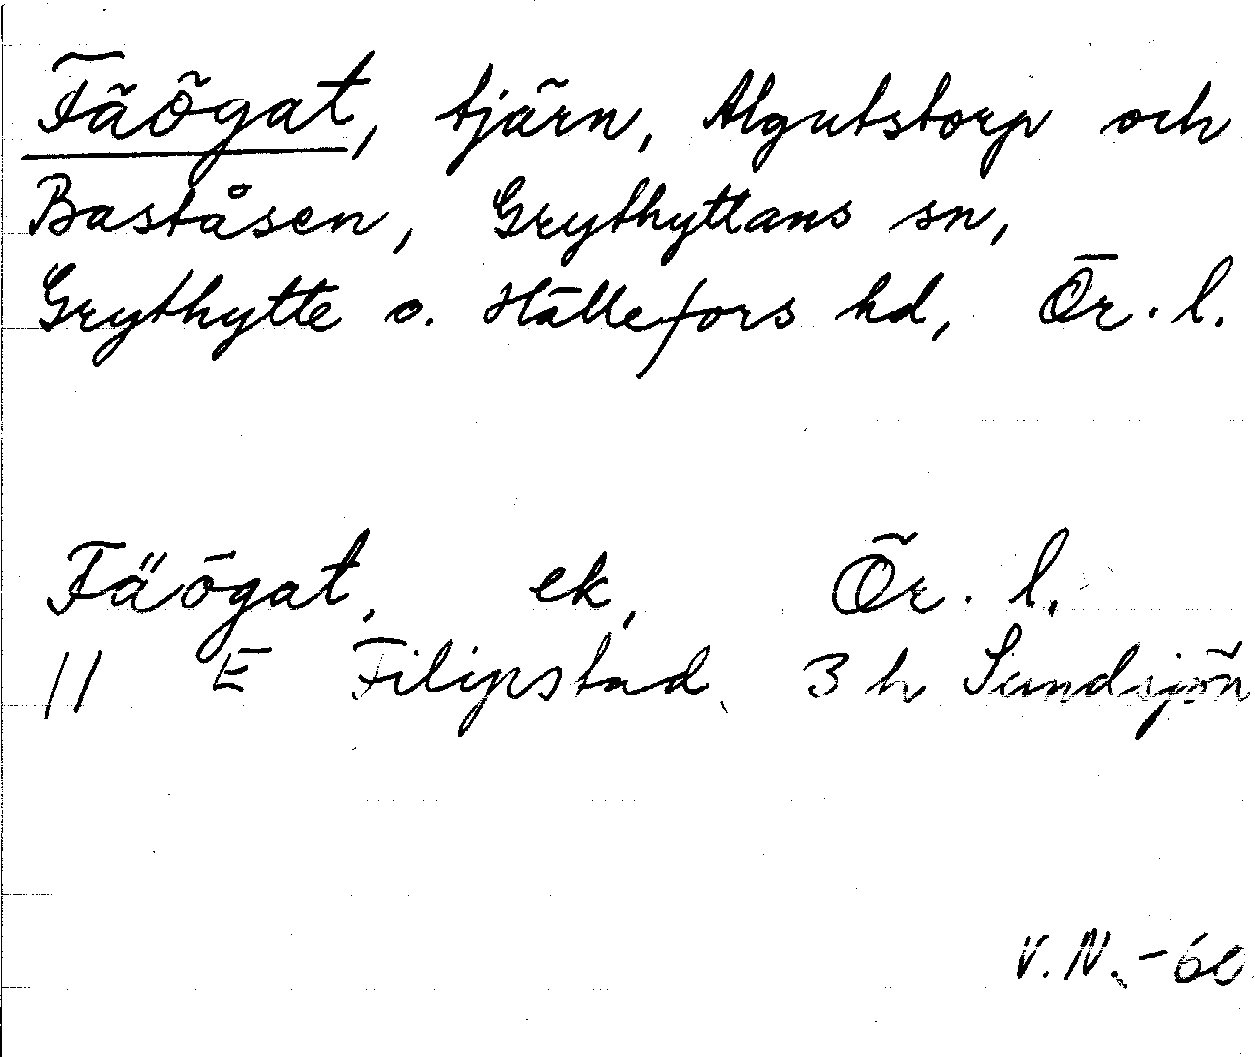 Fäögat, tjärn, Algutstorp och
Baståsen, Grythyttans sn,
Grythytte o. Hällefors hd, Ör. l.
Fäögat, ek, Ör. l.
11 E Filipstad 3 h Sundsjön
V. N. -60